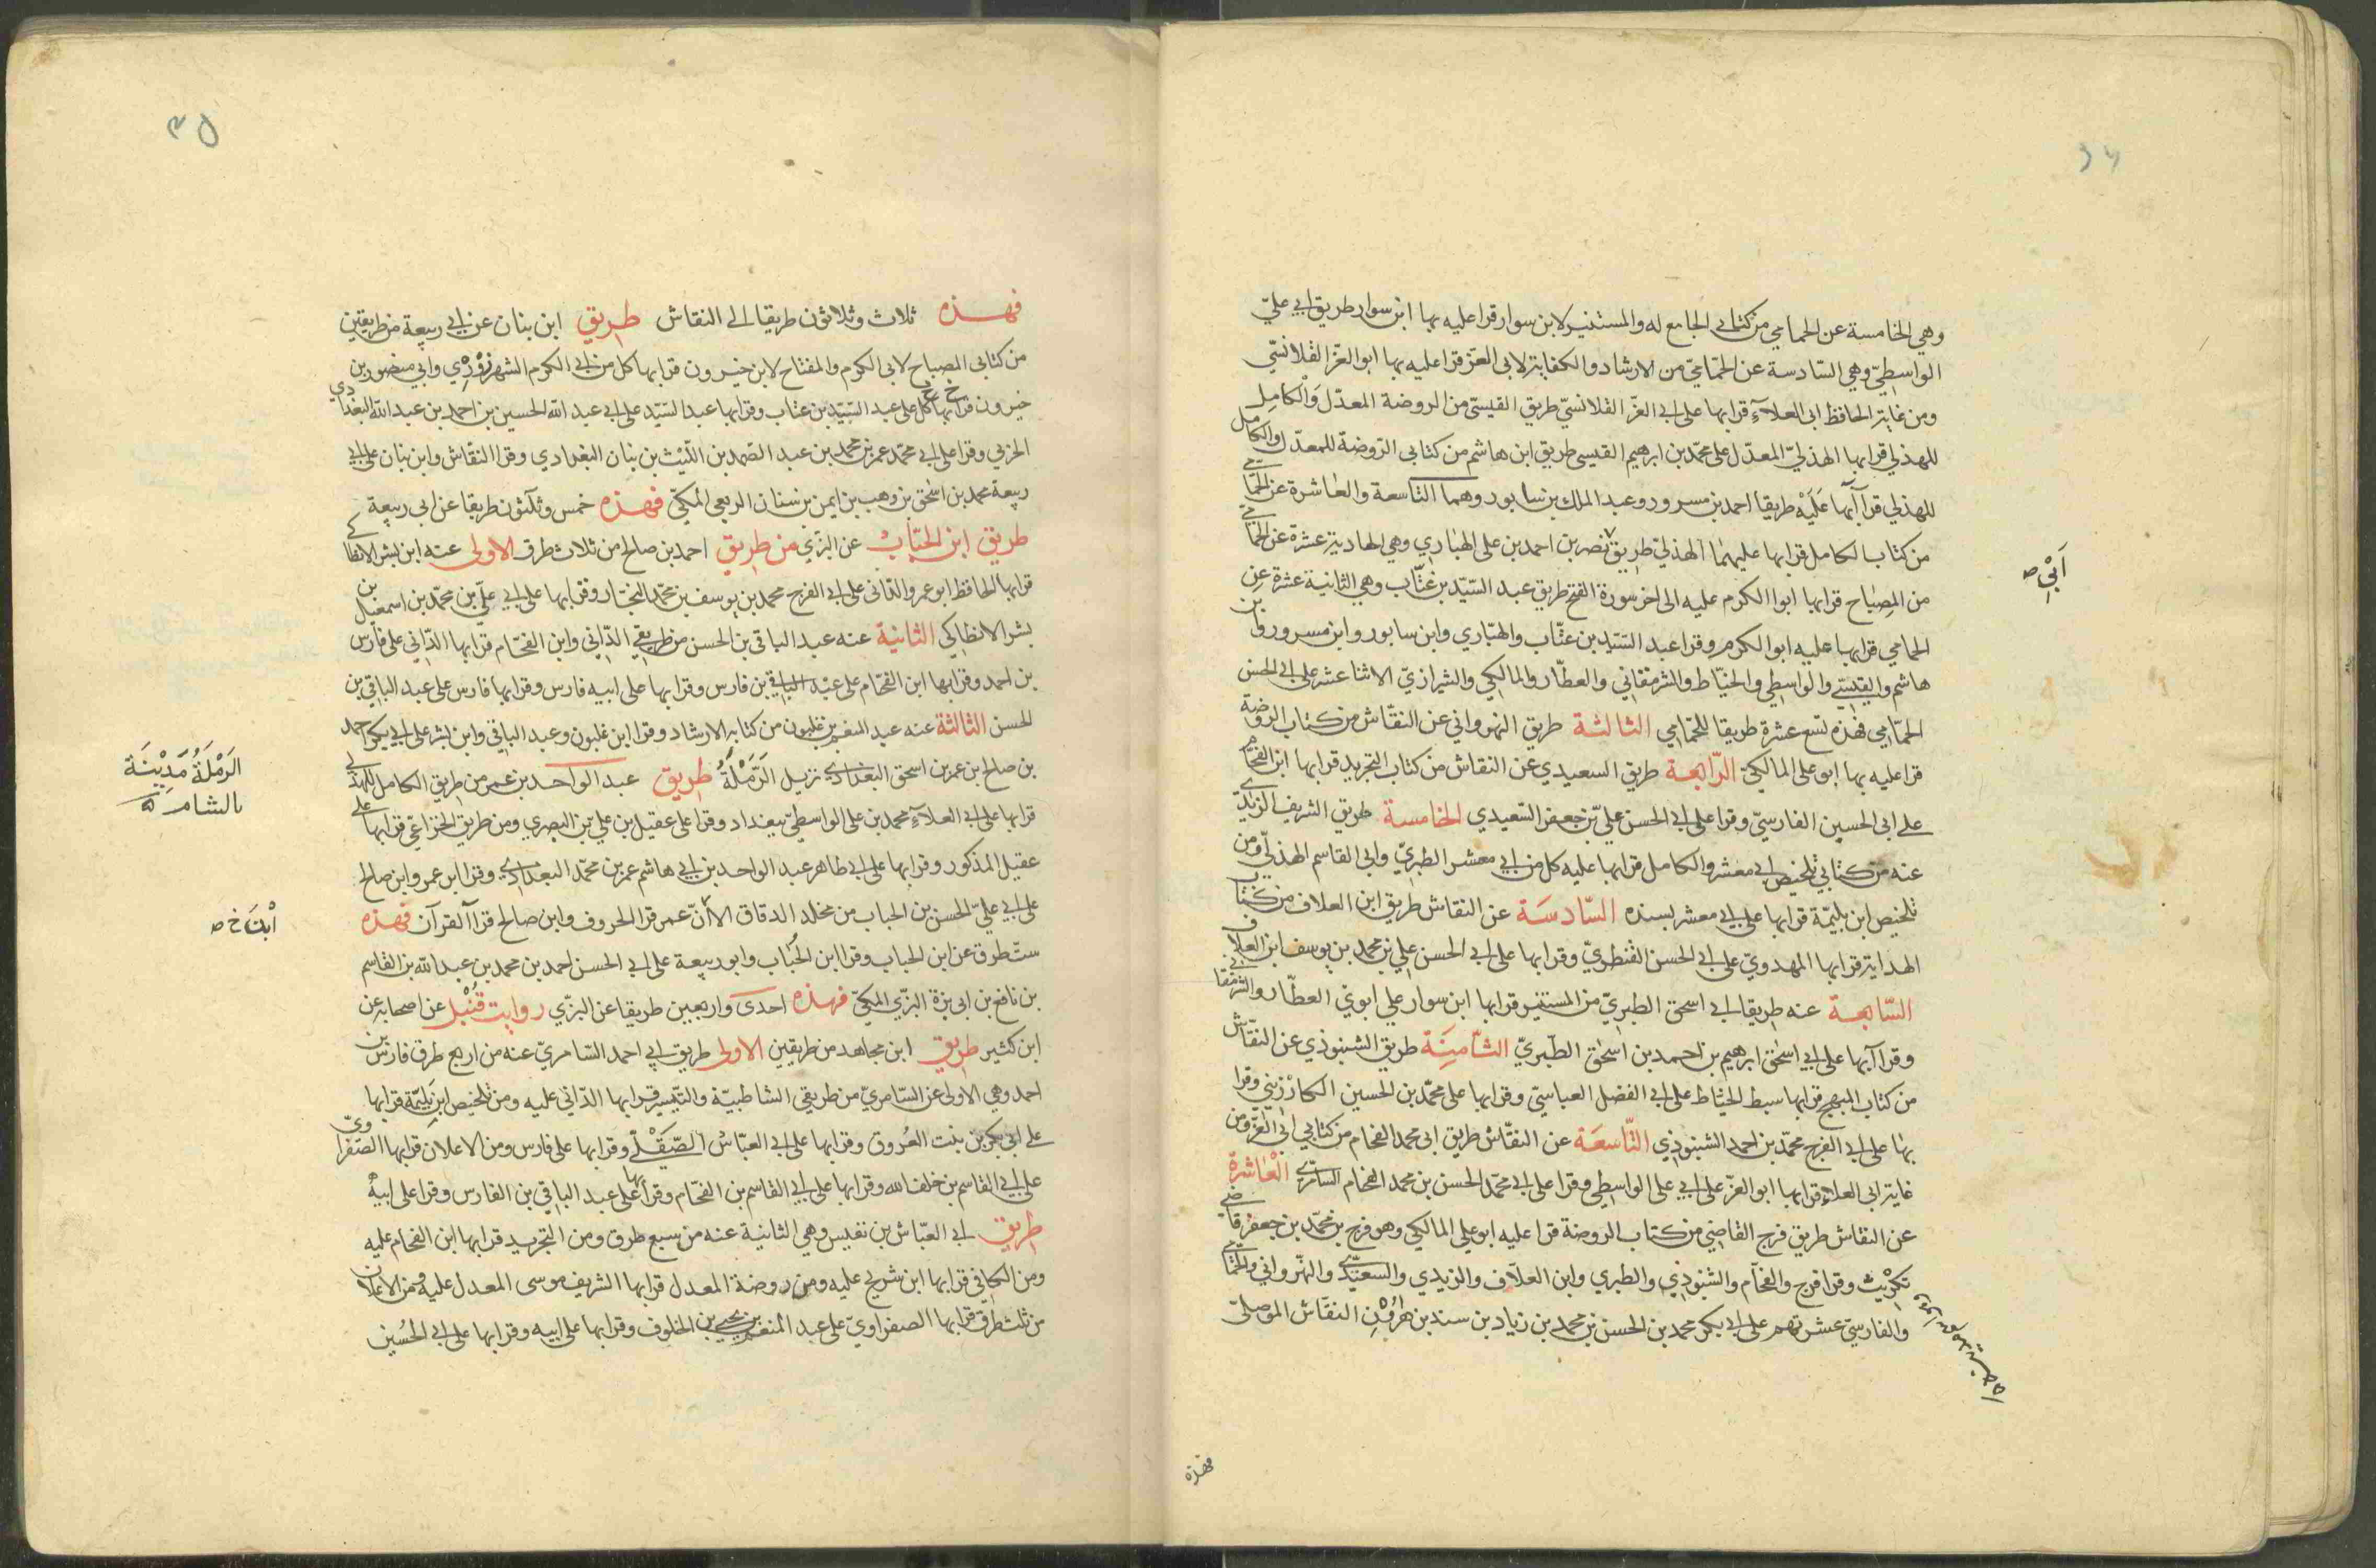 ٣٤
وهي الخامسة عن الحمامي من كتابي الجامع له والمستنير لابن سوار قرا عليه بها ابن سوار طريق ابي علي
الواسطي وهي السادسة عن الحمامي من الارشاد والكفاية لابي العز قرا عليه بها ابو العز القلانسي
ومن غاية الحافظ ابي العلاء قرا بها على ابي العز القلانسي طريق القيسي من الروضة المعدل والكامل
للهذلي قرا بها الهذلي المعدل على محمد بن ابرهيم القيسي طريق ابن هاشم من كتابي الروضة للمعدل والكامل
للهذلي قرآ بها عليه طريقا احمد بن مسرور وعبد الملك بن سابور وهما التاسعة والعاشرة عن الحمامي
من كتاب الكامل قرا بها عليهما الهذلي طريق نصر بن احمد بن على الهباري وهي الحادية عشرة عن الحمامي
من المصباح قرا بها ابوا الكرم عليه الى اخر سورة الفتح طريق عبد السيد بن عتاب وهي الثانية عشرة عن
الحمامي قرا بها عليه ابو الكرم وقرا عبد السيد بن عتاب والهباري وابن سابور وابن مسرور وابن
هاشم والقيسي والواسطي والخياط والشرمقاني والعطار والمالكي والشيرازي الاثنا عشر على ابي الحسن
الحمامي فهذه تسع عشرة طريقا للحمامي الثالثة طريق النهرواني عن النقاش من كتاب الروضة
قرا عليه بها ابو على المالكي الرابعة طريق السعيدي عن النقاش من كتاب التجريد قرا بها ابن الفحام
على ابي الحسين الفارسي وقرا على ابي الحسن علي بن جعفر السعيدي الخامسة طريق الشريف الزيدي
عنه من كتابي تلخيص ابي معشر والكامل قرا بها عليه كل من ابي معشر الطبري وابي القاسم الهذلي ومن
تلخيص ابن بليمة قرا بها على ابي معشر بسنده السادسة عن النقاش طريق ابن العلاف من كتاب
الهداية قرا بها المهدوي على ابي الحسن القنطري وقرا بها على ابي الحسن علي بن محمد بن يوسف ابن العلاف
السابعة عنه طريقا ابي اسحق الطبري من المستنير قرا بها ابن سوار على ابوي العطار والشرمقاني
وقرآ بها على ابي اسحق ابرهيم بن احمد بن اسحق الطبري الثامنة طريق الشنبوذي عن النقاش
من كتاب المبهج قرا بها سبط الخياط على ابي الفضل العباسي وقرا بها على محمد بن الحسين الكارزيني وقرا
بها على ابي الفرج محمد بن احمد الشنبوذي التاسعة عن النقاش طريق ابي محمد الفحام من كتابي ابي العز ومن
غاية ابي العلاء قرا بها ابو العز على ابي على الواسطي وقرا على ابي محمد الحسن بن محمد الفحام السامري العاشرة
عن النقاش طريق فرج القاضي من كتاب الروضة قرا عليه ابو علي المالكي وهو فرج بن محمد بن جعفر قاضي
تكريت وقرا فرج والفحام والشنبوذي والطبري وابن العلاف والزيدي والسعيدي والنهرواني والحمامي
والفارسي عشرتهم على ابي بكر محمد بن الحسن بن محمد بن زياد بن سند بن هرون النقاش الموصلي
ابي صح
فهذه
٣٥
فهذه ثلاث وثلاثون طريقا الى النقاش طريق ابن بنان عن ابي ربيعة من طريقين
من كتابي المصباح لابي الكرم والمفتاح لابن خيرون قرا بها كل من ابي الكرم الشهرزوري وابي منصور بن
خيرون قرا بها كل على عبد السيد بن عتاب وقرا بها عبد السيد على ابي عبد الله الحسين بن احمد بن عبد الله البغدادي
الحربي وقرا على ابي محمد عمر بن محمد بن عبد الصمد بن الليث بن بنان البغدادي وقرا النقاش وابن بنان على ابي
ربيعة محمد بن اسحق بن وهب بن ايمن بن سنان الربعي المكي فهذه خمس وثلثون طريقا عن ابي ربيعة
طريق ابن الحباب عن البزي من طريق احمد بن صالح من ثلاث طرق الاولى عنه ابن بشر الانطاكي
قرا بها الحافظ ابو عمرو الداني على ابي الفرج محمد بن يوسف بن محمد النجار وقرا بها على ابي علي بن محمد بن اسمعيل بن
بشر الانطاكي الثانية عنه عبد الباقي بن الحسن من طريقي الداني وابن الفحام قرا بها الداني على فارس
بن احمد وقرا بها ابن الفحام على عبد الباقي بن فارس وقرا بها على ابيه فارس وقرا بها فارس على عبد الباقي بن
الحسن الثالثة عنه عبد المنعم بن غلبون من كتابه الارشاد وقرا ابن غلبون وعبد الباقي وابن بشر على ابي بكر احمد
بن صالح ابن عمر بن اسحق البغدادي نزيل الرملة طريق عبد الواحد بن عمر من طريق الكامل للهذلي
قرا بها على ابي العلاء محمد بن على الواسطي ببغداد وقرا على عقيل بن علي بن البصري ومن طريق الخزاعي قرا بها على
عقيل المذكور وقرا بها على ابي طاهر عبد الواحد بن ابي هاشم عمر بن محمد البغدادي وقرا ابن عمر وابن صالح
على ابي علي الحسن بن الحباب من مخلد الدقاق الا ان عمر قرا الحروف وابن صالح قرا القرآن فهذه
ست طرق عن ابن الحباب وقرا ابن الحباب وابو ربيعة على ابي الحسن احمد بن محمد بن عبد الله بن القاسم
بن نافع بن ابي بزة البزي المكي فهذه احدى واربعين طريقا عن البزي روايت قنبل عن اصحابه عن
ابن كثير طريق ابن مجاهد من طريقين الاولى طريق ابي احمد السامري عنه من اربع طرق فارس بن
احمد وهي الاولى عن السامري من طريقي الشاطبية والتيسير قرا بها الداني عليه ومن تلخيص ابن بليمة قرا بها
على ابي بكر بن بنت العروق وقرا بها على ابي العباس الصقلي وقرا بها على فارس ومن الاعلان قرا بها الصفراوي
على ابي القاسم بن خلف الله وقرا بها على ابي القاسم بن الفحام وقرا بها على عبد الباقي بن الفارس وقرا على ابيه
طريق ابي العباس بن نفيس وهي الثانية عنه من سبع طرق ومن التجريد قرا بها ابن الفحام عليه
ومن الكافي قرا بها ابن شريح عليه ومن روضة المعدل قرا بها الشريف موسى المعدل عليه ومن الاعلان
من ثلث طرق قرا بها الصفراوي على عبد المنعم بن يحيى بن الخلوف وقرا بها على ابيه وقرا بها على ابي الحسين
الرملة مدينة
بالشام
ابن خ صح